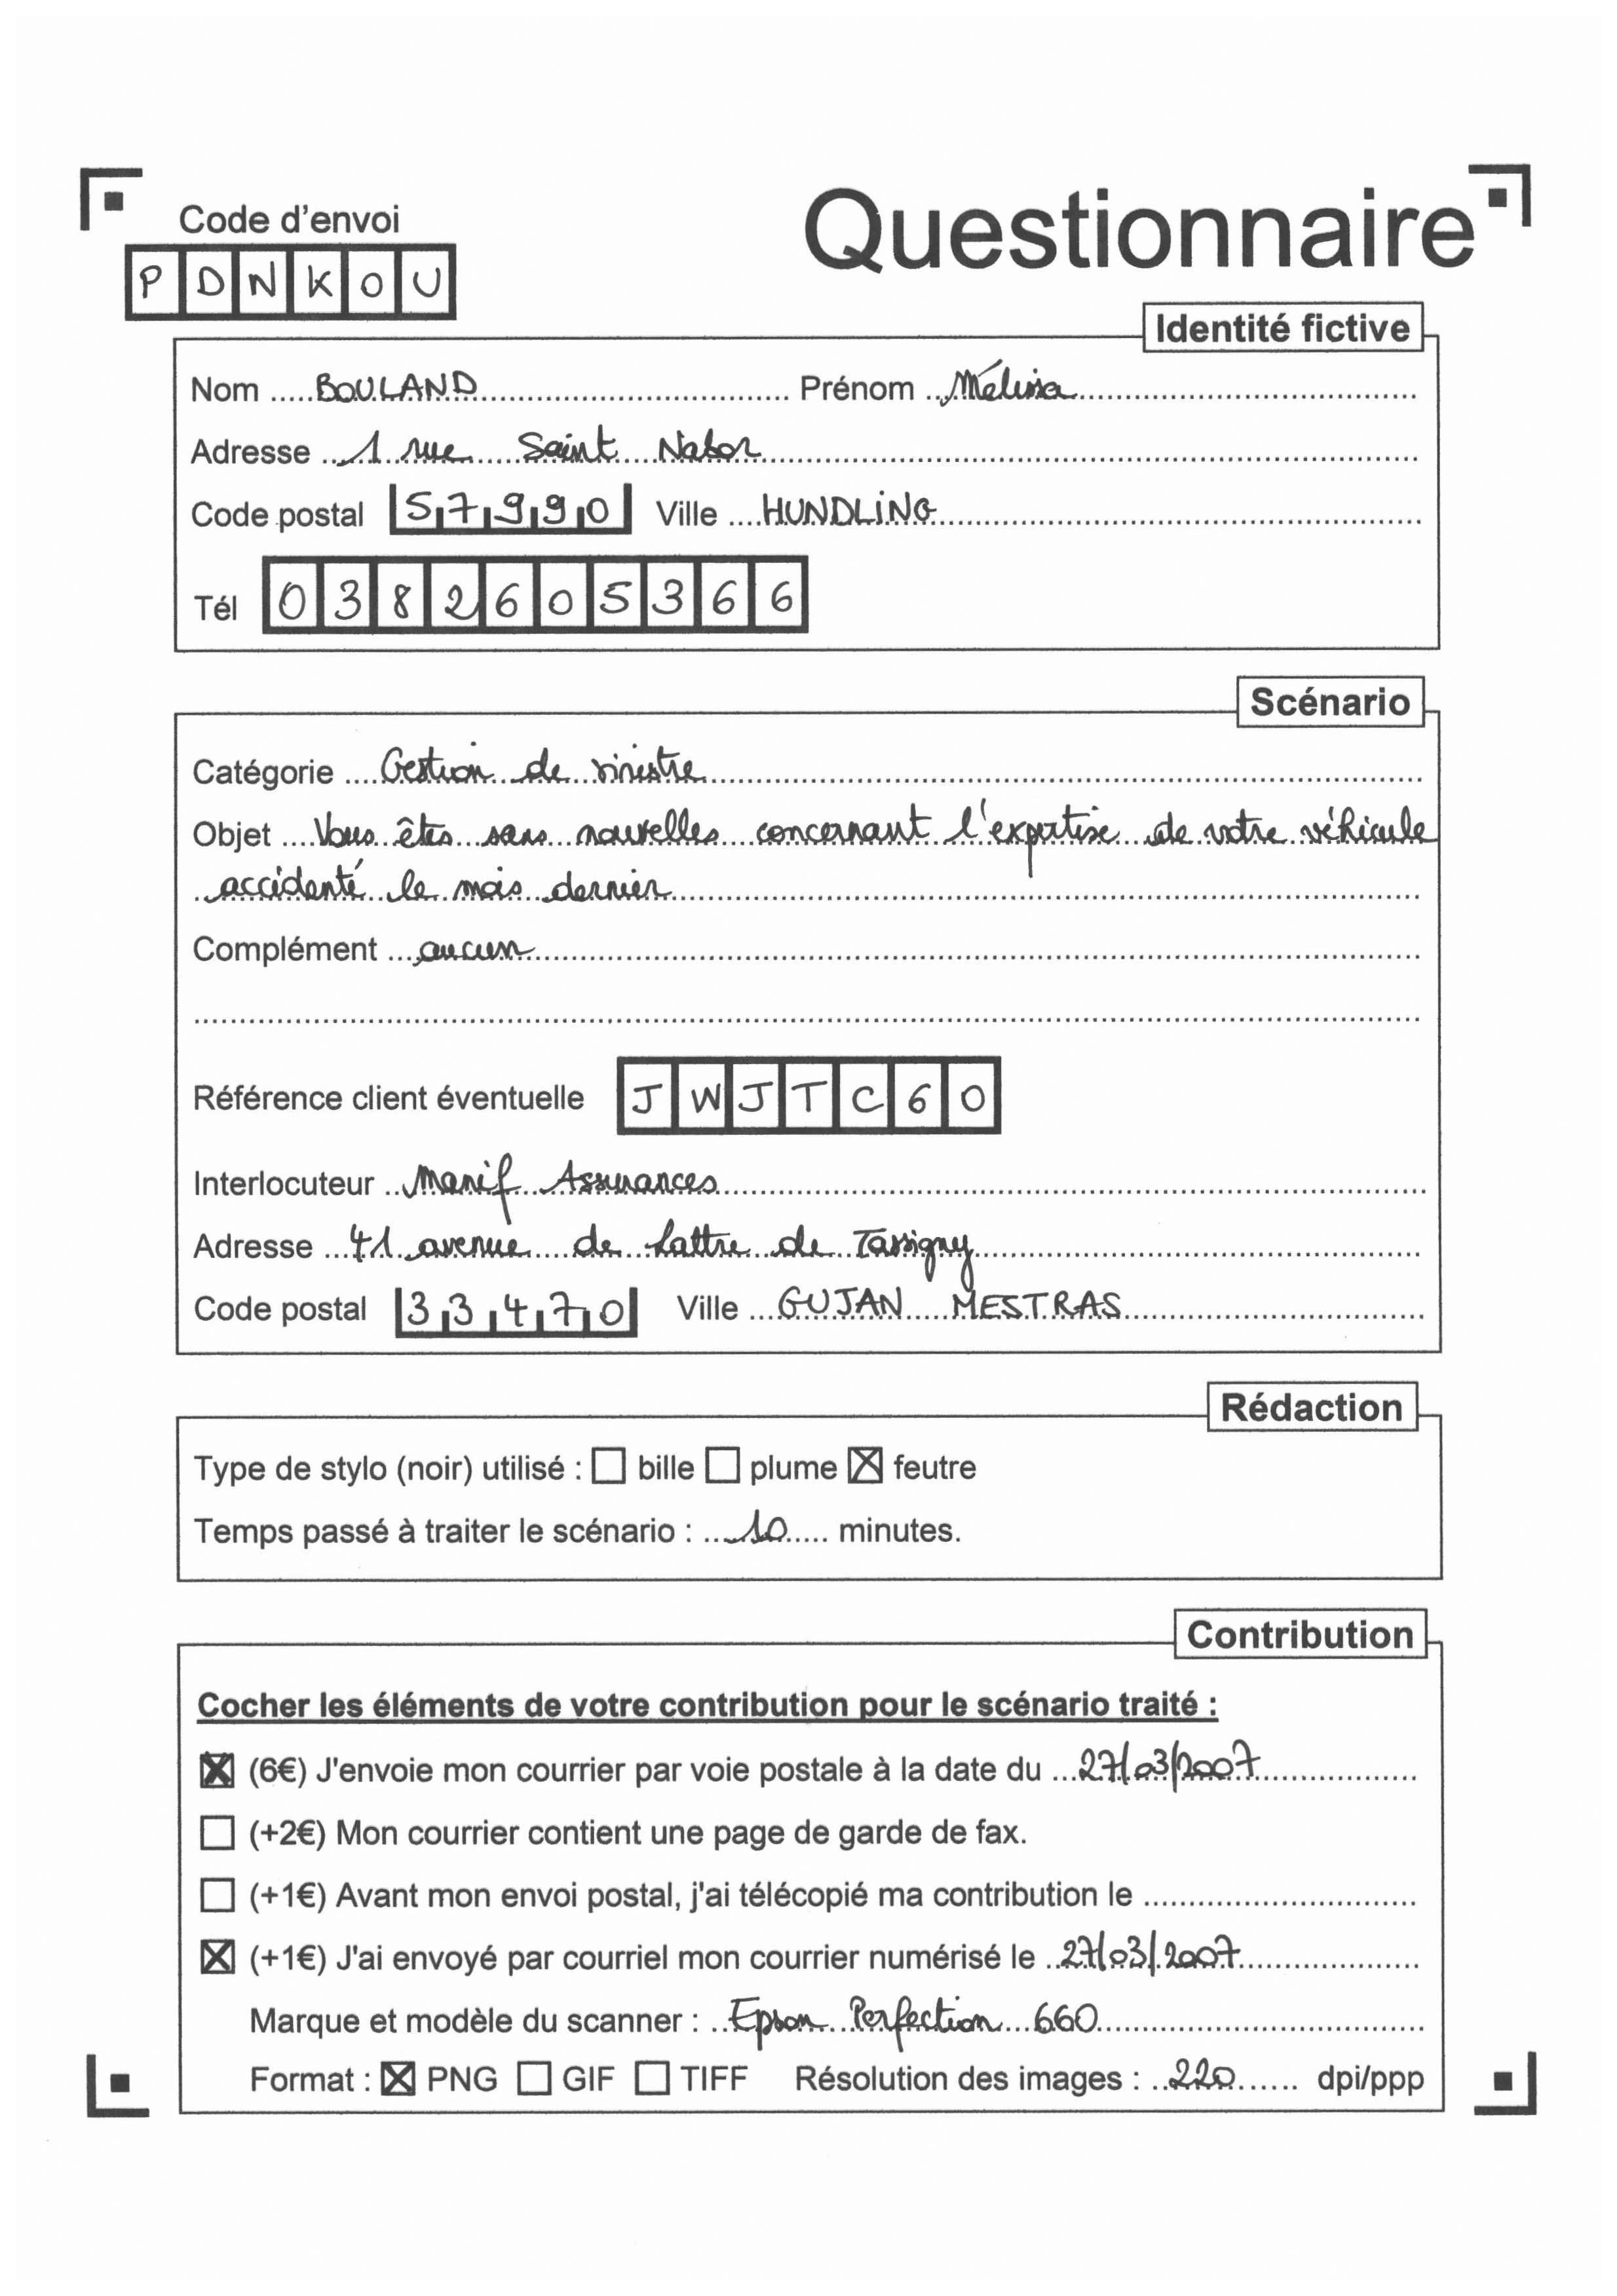 Code d'envoi
Questionnaire
P D N K O U
Identité fictive
Nom BOULAND Prénom Mélissa
Adresse 1 rue Saint Nabor
Code postal 57990 Ville HUNDLING
Tél 0382605366
Scénario
Catégorie Gestion de sinistre
Objet Vous êtes sans nouvelles concernant l'expertise de votre véhicule
accidenté le mois dernier
Complément aucun
Référence client éventuelle JWJTC60
Interlocuteur Manif Assurances
Adresse 41 avenue de Lattre de Tassigny
Code postal 33470 Ville GUJAN MESTRAS
Rédaction
Type de stylo (noir) utilisé : ☐ bille ☐ plume ☒ feutre
Temps passé à traiter le scénario : 10 minutes.
Contribution
Cocher les éléments de votre contribution pour le scénario traité :
☒ (6€) J'envoie mon courrier par voie postale à la date du 27/03/2007
☐ (+2€) Mon courrier contient une page de garde de fax.
☐ (+1€) Avant mon envoi postal, j'ai télécopié ma contribution le
☒ (+1€) J'ai envoyé par courriel mon courrier numérisé le 27/03/2007
Marque et modèle du scanner : Epson Perfection 660
Format : ☒ PNG ☐ GIF ☐ TIFF Résolution des images : 220 dpi/ppp